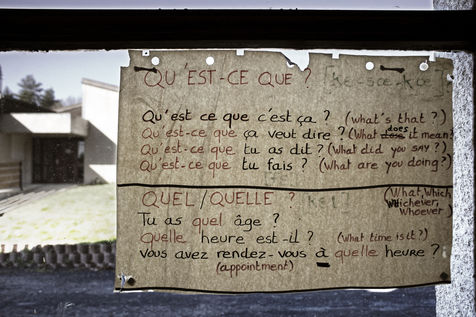 QU'EST-CE QUE ? [Ke-sœ-kœ]
Qu'est ce que c'est ça ? (what's that ?)
Qu'est-ce que ça veut dire ? (What does it mean?
Qu'est-ce que tu as dit ? (What did you say ?)
Qu'est-ce que tu fais ? (What are you doing?)
QUEL/QUELLE ? [kel] (What, Which
Whichever,
Whoever)
Tu as quel âge ?
Quelle heure est-il ? (What time is it?)
Vous avez rendez-vous à quelle heure ?
(appointment)